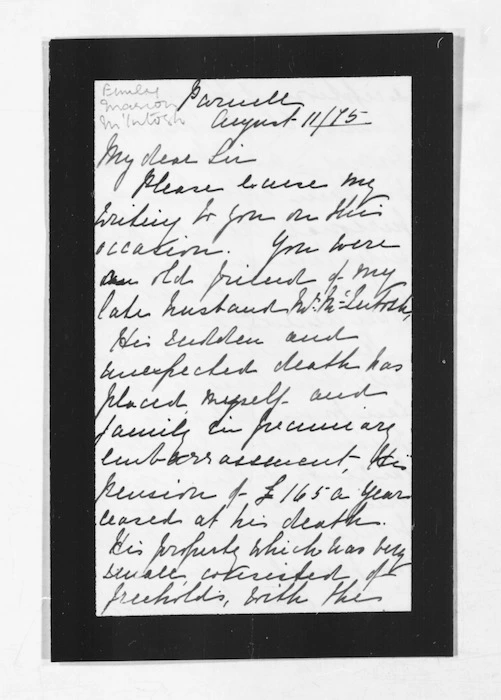 Emily
Marion
McIntosh
Parnell
August 11/75
My dear Sir
Please excuse my
writing to you on this
occasion. You were
an old friend of my
late husband Mr. McIntosh,
His sudden and
unexpected death has
placed myself and
family in pecuniary
embarrassement, His
pension of £165 a year
ceased at his death.
His property which was very
small, consisted of
freeholds, with the